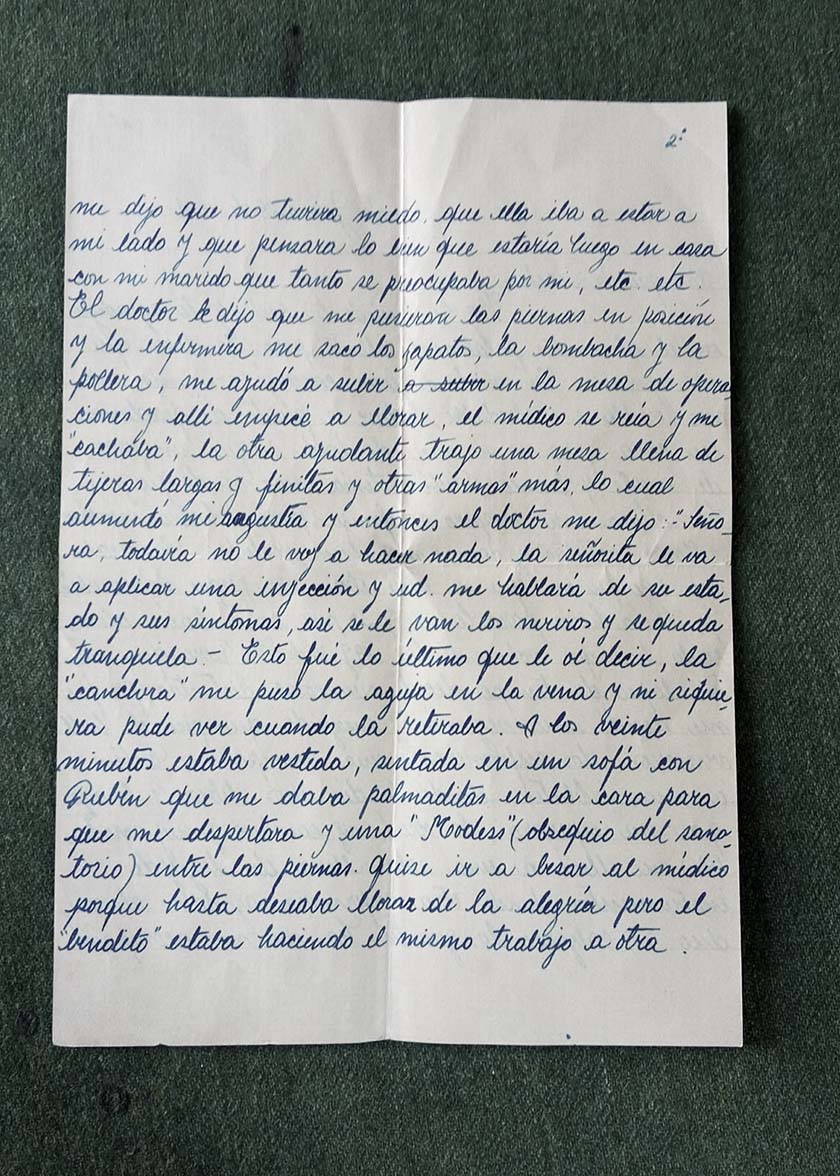 2ª
me dijo que no tuviera miedo, que ella iba a estar a
mi lado y que pensara lo bien que estaría luego en casa
con mi marido que tanto se preocupaba por mi, etc. etc.
El doctor le dijo que me pusieran las piernas en posición
y la enfermera me sacó los zapatos, la bombacha y la
pollera, me ayudó a subir a subir en la mesa de opera-
ciones y allí empecé a llorar, el médico se reía y me
"cachaba", la otra ayudante trajo una mesa llena de
tijeras largas y finitas y otras "armas" más, lo cual
aumentó mi angustia y entonces el doctor me dijo: "Seño-
ra, todavía no le voy a hacer nada, la señorita le va
a aplicar una injección y ud. me hablará de su esta-
do y sus síntomas, así se le van los nervios y se queda
tranquila.- Esto fué lo último que le oí decir, la
"canchera" me puso la aguja en la vena y ni siquie-
ra pude ver cuando la retiraba. A los veinte
minutos estaba vestida, sentada en un sofá con
Rubén que me daba palmaditas en la cara para
que me despertara y una "Modess" (obsequio del sana-
torio) entre las piernas. Quise ir a besar al médico
porque hasta deseaba llorar de la alegría pero el
"bendito" estaba haciendo el mismo trabajo a otra.